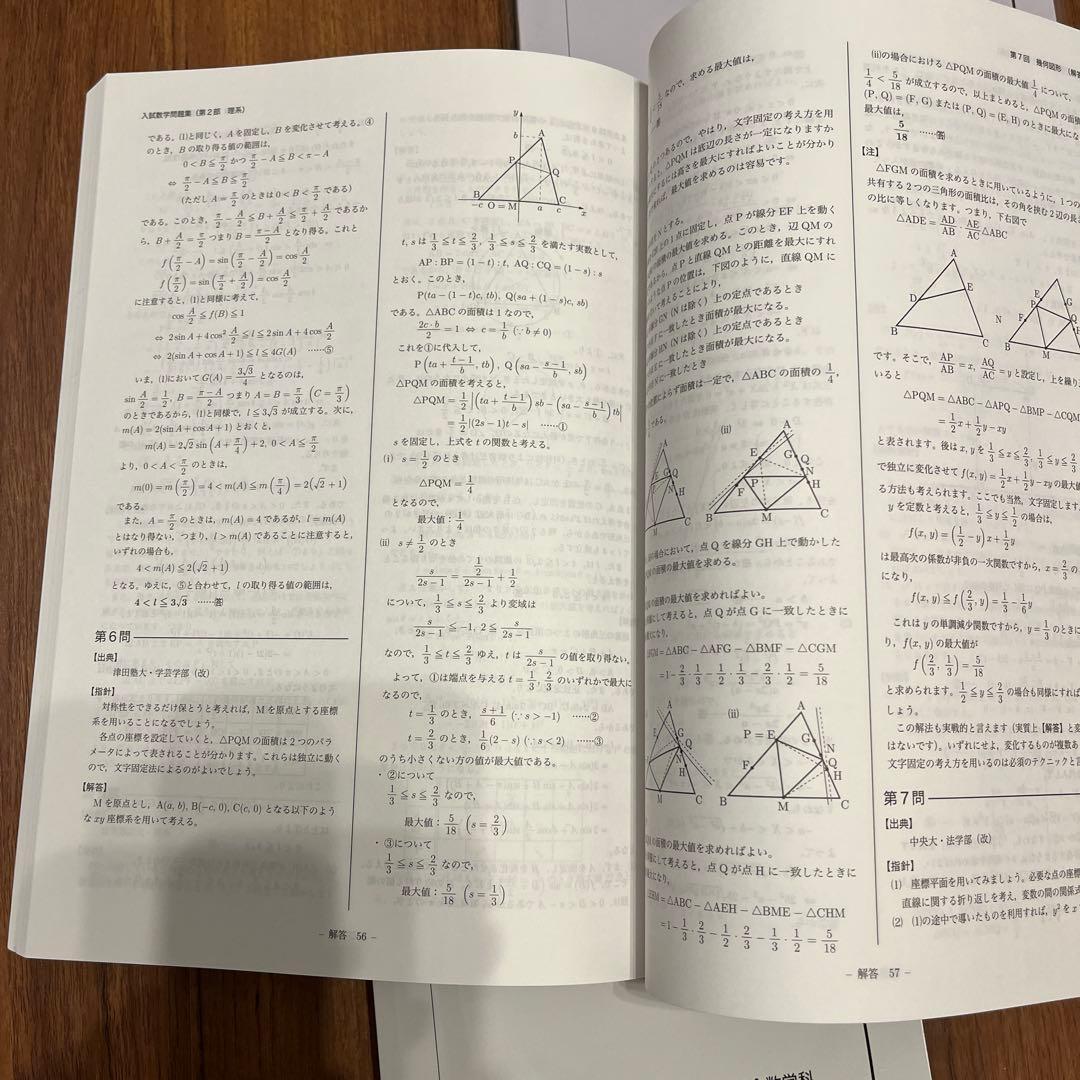 入試数学問題集(第2部 理系)
である。(1)と同じく,Aを固定し,Bを変化させて考える。④
のとき,Bの取り得る値の範囲は,
0<B≦π/2 かつ π/2-A≦B<π-A
⇔ π/2-A≦B≦π/2
(ただしA=π/2のときは0<B<π/2である)
である。このとき,π/2-A/2≦B+A/2≦π/2+A/2であるか
ら,B+A/2=π/2 つまりB=(π-A)/2となり得る。これと
f(π/2-A)=sin(π/2-A/2)=cos A/2
f(π/2)=sin(π/2+A/2)=cos A/2
に注意すると,(1)と同様に考えて,
cos A/2≦f(B)≦1
⇔ 2sinA+4cos² A/2≦l≦2sinA+4cos A/2
⇔ 2(sinA+cosA+1)≦l≦4G(A) ……⑤
いま,(1)においてG(A)=3√3/4となるのは,
sin A/2=1/2, B=(π-A)/2 つまりA=B=π/3 (C=π/3)
のときであるから,(1)と同様で,l≦3√3が成立する。次に,
m(A)=2(sinA+cosA+1)とおくと,
m(A)=2√2 sin(A+π/4)+2, 0<A≦π/2
より,0<A<π/2のときは,
m(0)=m(π/2)=4<m(A)≦m(π/4)=2(√2+1)
である。
また,A=π/2のときは,m(A)=4であるが,l=m(A)
とはなり得ない。つまり,l>m(A)であることに注意すると,
いずれの場合も,
4<m(A)≦2(√2+1)
となる。ゆえに,⑤と合わせて,lの取り得る値の範囲は,
4<l≦3√3 ……答
第6問
【出典】
津田塾大・学芸学部(改)
【指針】
対称性をできるだけ保とうと考えれば,Mを原点とする座標
系を用いることになるでしょう。
各点の座標を設定していくと,△PQMの面積は2つのパラ
メータによって表されることが分かります。これらは独立に動く
ので,文字固定法によるのがよいでしょう。
【解答】
Mを原点とし,A(a, b), B(-c, 0), C(c, 0)となる以下のよう
なxy座標系を用いて考える。
y
b
A
P
Q
B
C
-c O=M a c x
t, sは1/3≦t≦2/3, 1/3≦s≦2/3を満たす実数として,
AP:BP=(1-t):t, AQ:CQ=(1-s):s
とおく。このとき,
P(ta-(1-t)c, tb), Q(sa+(1-s)c, sb)
である。△ABCの面積は1なので,
2c・b/2=1 ⇔ c=1/b (∵b≠0)
これを①に代入して,
P(ta+(t-1)/b, tb), Q(sa-(s-1)/b, sb)
△PQMの面積を考えると,
△PQM=1/2|(ta+(t-1)/b)sb-(sa-(s-1)/b)tb|
=1/2|(2s-1)t-s| ……①
sを固定し,上式をtの関数と考える。
(i) s=1/2のとき
△PQM=1/4
となるので,
最大値:1/4
(ii) s≠1/2のとき
s/(2s-1)=(1/2)/(2s-1)+1/2
について,1/3≦s≦2/3より変域は
s/(2s-1)≦-1, 2≦s/(2s-1)
なので,1/3≦t≦2/3ゆえ,tはs/(2s-1)の値を取り得ない。
よって,①は端点を与えるt=1/3, 2/3のいずれかで最大に
なるので,
t=1/3のとき,(s+1)/6 (∵s>-1) ……②
t=2/3のとき,1/6(2-s) (∵s<2) ……③
のうち小さくない方の値が最大値である。
・②について
1/3≦s≦2/3なので,
最大値:5/18 (s=2/3)
・③について
1/3≦s≦2/3なので,
最大値:5/18 (s=1/3)
- 解答 56 -
なので,求める最大値は,
つあるので,やはり,文字固定の考え方を用
△PQMは底辺の長さが一定になりますか
するには高さを最大にすればよいことが分かり
れば,最大値を求めるのは容易です。
Nとする。
上の1点に固定し,点Pが線分EF上を動く
の面積の最大値を求める。このとき,辺QMの
から,点Pと直線QMとの距離を最大にすれ
点Pの位置は,下図のように,直線QMに
考えることにより,
分GN(Nは除く)上の定点であるとき
に一致したとき面積が最大になる。
分HN(Nは除く)上の定点であるとき
に一致したとき面積が最大になる。
に一致したとき
によらず面積は一定で,△ABCの面積の1/4,
である。
(ii)
A
E G Q
N
F P H
B M C
の場合において,点Qを線分GH上で動かした
の面積の最大値を求める。
の面積の最大値を求めればよい。
様にして考えると,点Qが点Gに一致したときに
最大になり,
FGM=△ABC-△AFG-△BMF-△CGM
=1-2/3・1/3-1/3・1/2-1/2・2/3=5/18
(ii)
A
P=E G
Q
F N H
B M C
の面積の最大値を求めればよい。
様にして考えると,点Qが点Hに一致したときに
最大になり,
EHM=△ABC-△AEH-△BME-△CHM
=1-1/3・2/3-1/2・2/3-1/3・1/2=5/18
- 解答 57 -
第7回 幾何図形 (解答
(ii)の場合における△PQMの面積の最大値1/4について,
1/4<5/18が成立するので,以上まとめると,△PQMの面積
(P, Q)=(F, G)または(P, Q)=(E, H)のときに最大にな
最大値は,
5/18 ……答
【注】
△FGMの面積を求めるときに用いているように,1つの
共有する2つの三角形の面積比は,その角を挟む2辺の長さ
の比に等しくなります。つまり,下右図で
△ADE=AD/AB・AE/AC△ABC
A
D E
B C
E
P
N F
B M
です。そこで,AP/AB=x, AQ/AC=yと設定し,上を繰り
いると
△PQM=△ABC-△APQ-△BMP-△CQM
=1/2x+1/2y-xy
と表されます。後はx, yを1/3≦x≦2/3, 1/3≦y≦2/3
で独立に変化させてf(x, y)=1/2x+1/2y-xyの最大値
る方法も考えられます。ここでも当然,文字固定します。
yを定数と考えると,1/3≦y≦1/2の場合は,
f(x, y)=(1/2-y)x+1/2y
は最高次の係数が非負の一次関数ですから,x=2/3の
になり,
f(x, y)≦f(2/3, y)=1/3-1/6y
これはyの単調減少関数ですから,y=1/3のときに
り,f(x, y)の最大値が
f(2/3, 1/3)=5/18
と求められます。1/2≦y≦2/3の場合も同様にすれば
しょう。
この解法も実戦的と言えます(実質上【解答】と変
はないです)。いずれにせよ,変化するものが複数あ
文字固定の考え方を用いるのは必須のテクニックと言
第7問
【出典】
中央大・法学部(改)
【指針】
(1) 座標平面を用いてみましょう。必要な点の座標
直線に関する折り返しを考え,変数の間の関係式
(2) (1)の途中で導いたものを利用すれば,y²をx
数学科